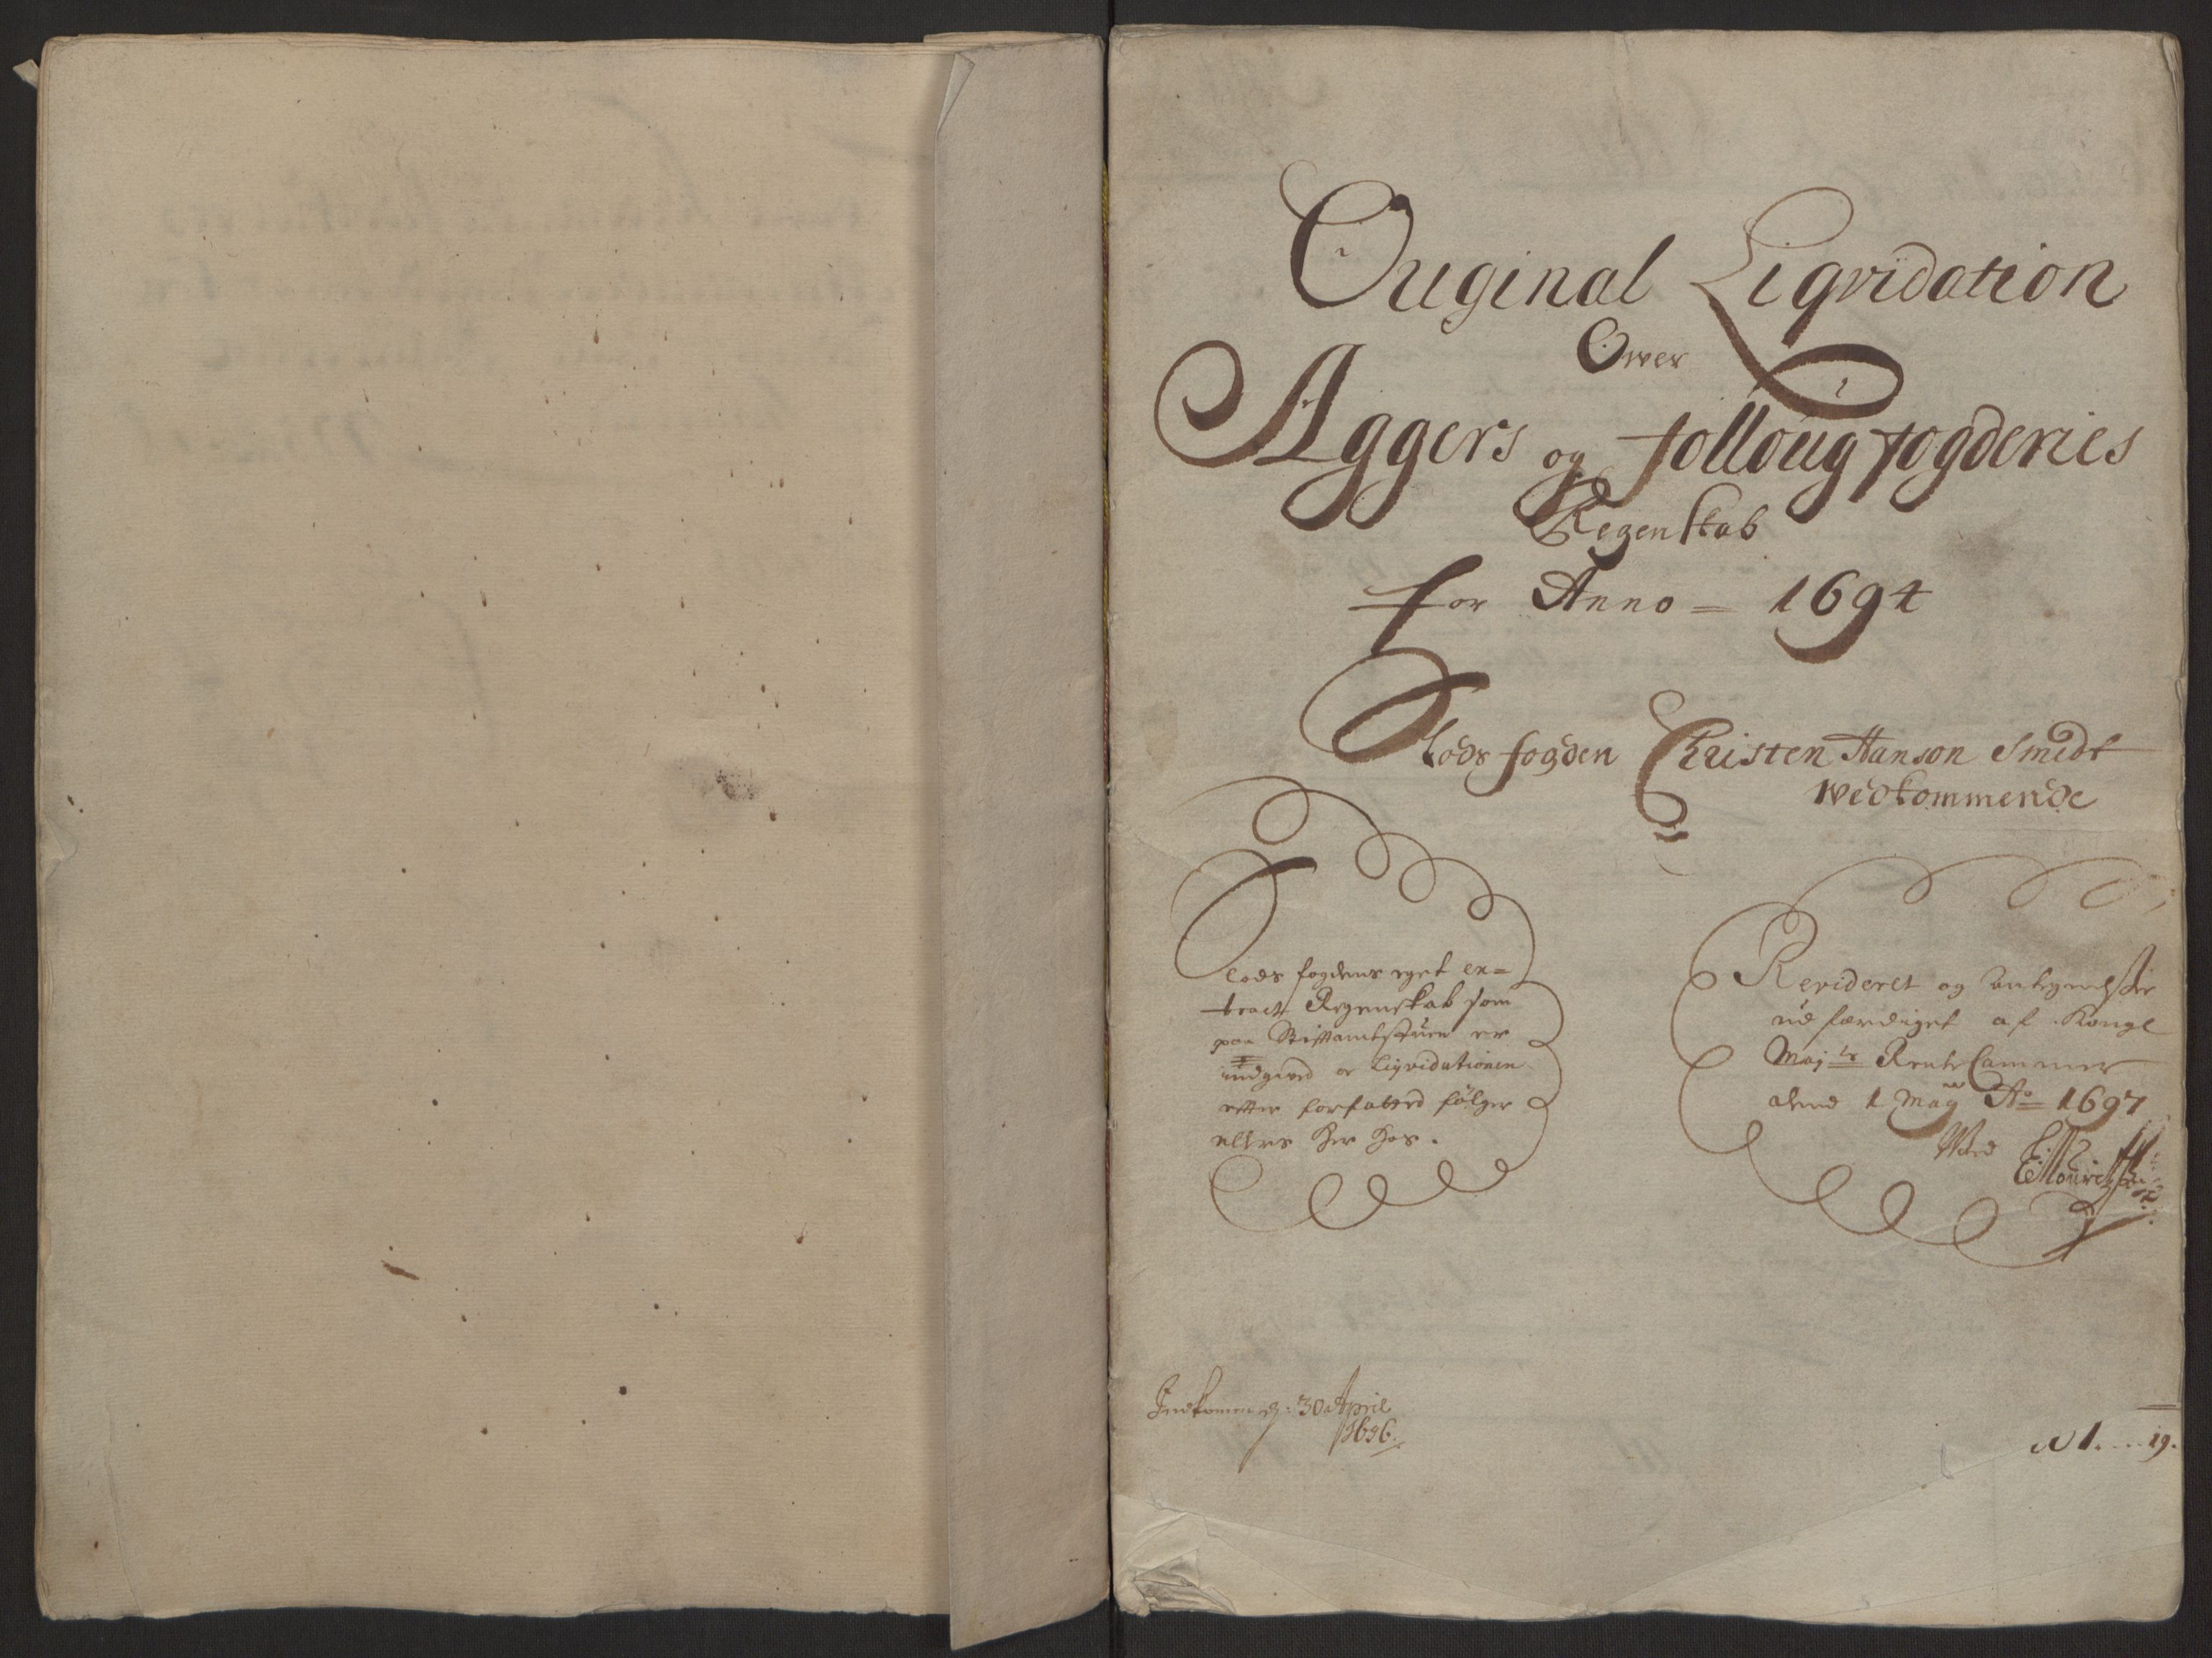 Original Liqvidation
Over
Aggers og folloug fogderies
Regenskab
for Anno = 1694
Slodsfogden Christen Hanson Smidt
vedkommende
Slods fogdens eget ex=
tract Regenskab som
paa Stiftamtstuen er
indgived er Liqvidationen
efter forfatted følger
ellers her hos.
Revideret og Antegnelsser
udfærdiget af Kongl
Maj:ts RenteCammer
dend 1 May Ao 1697
Ved
EMouritzen
Indkommen d: 30 April
1696.
N 1....19.